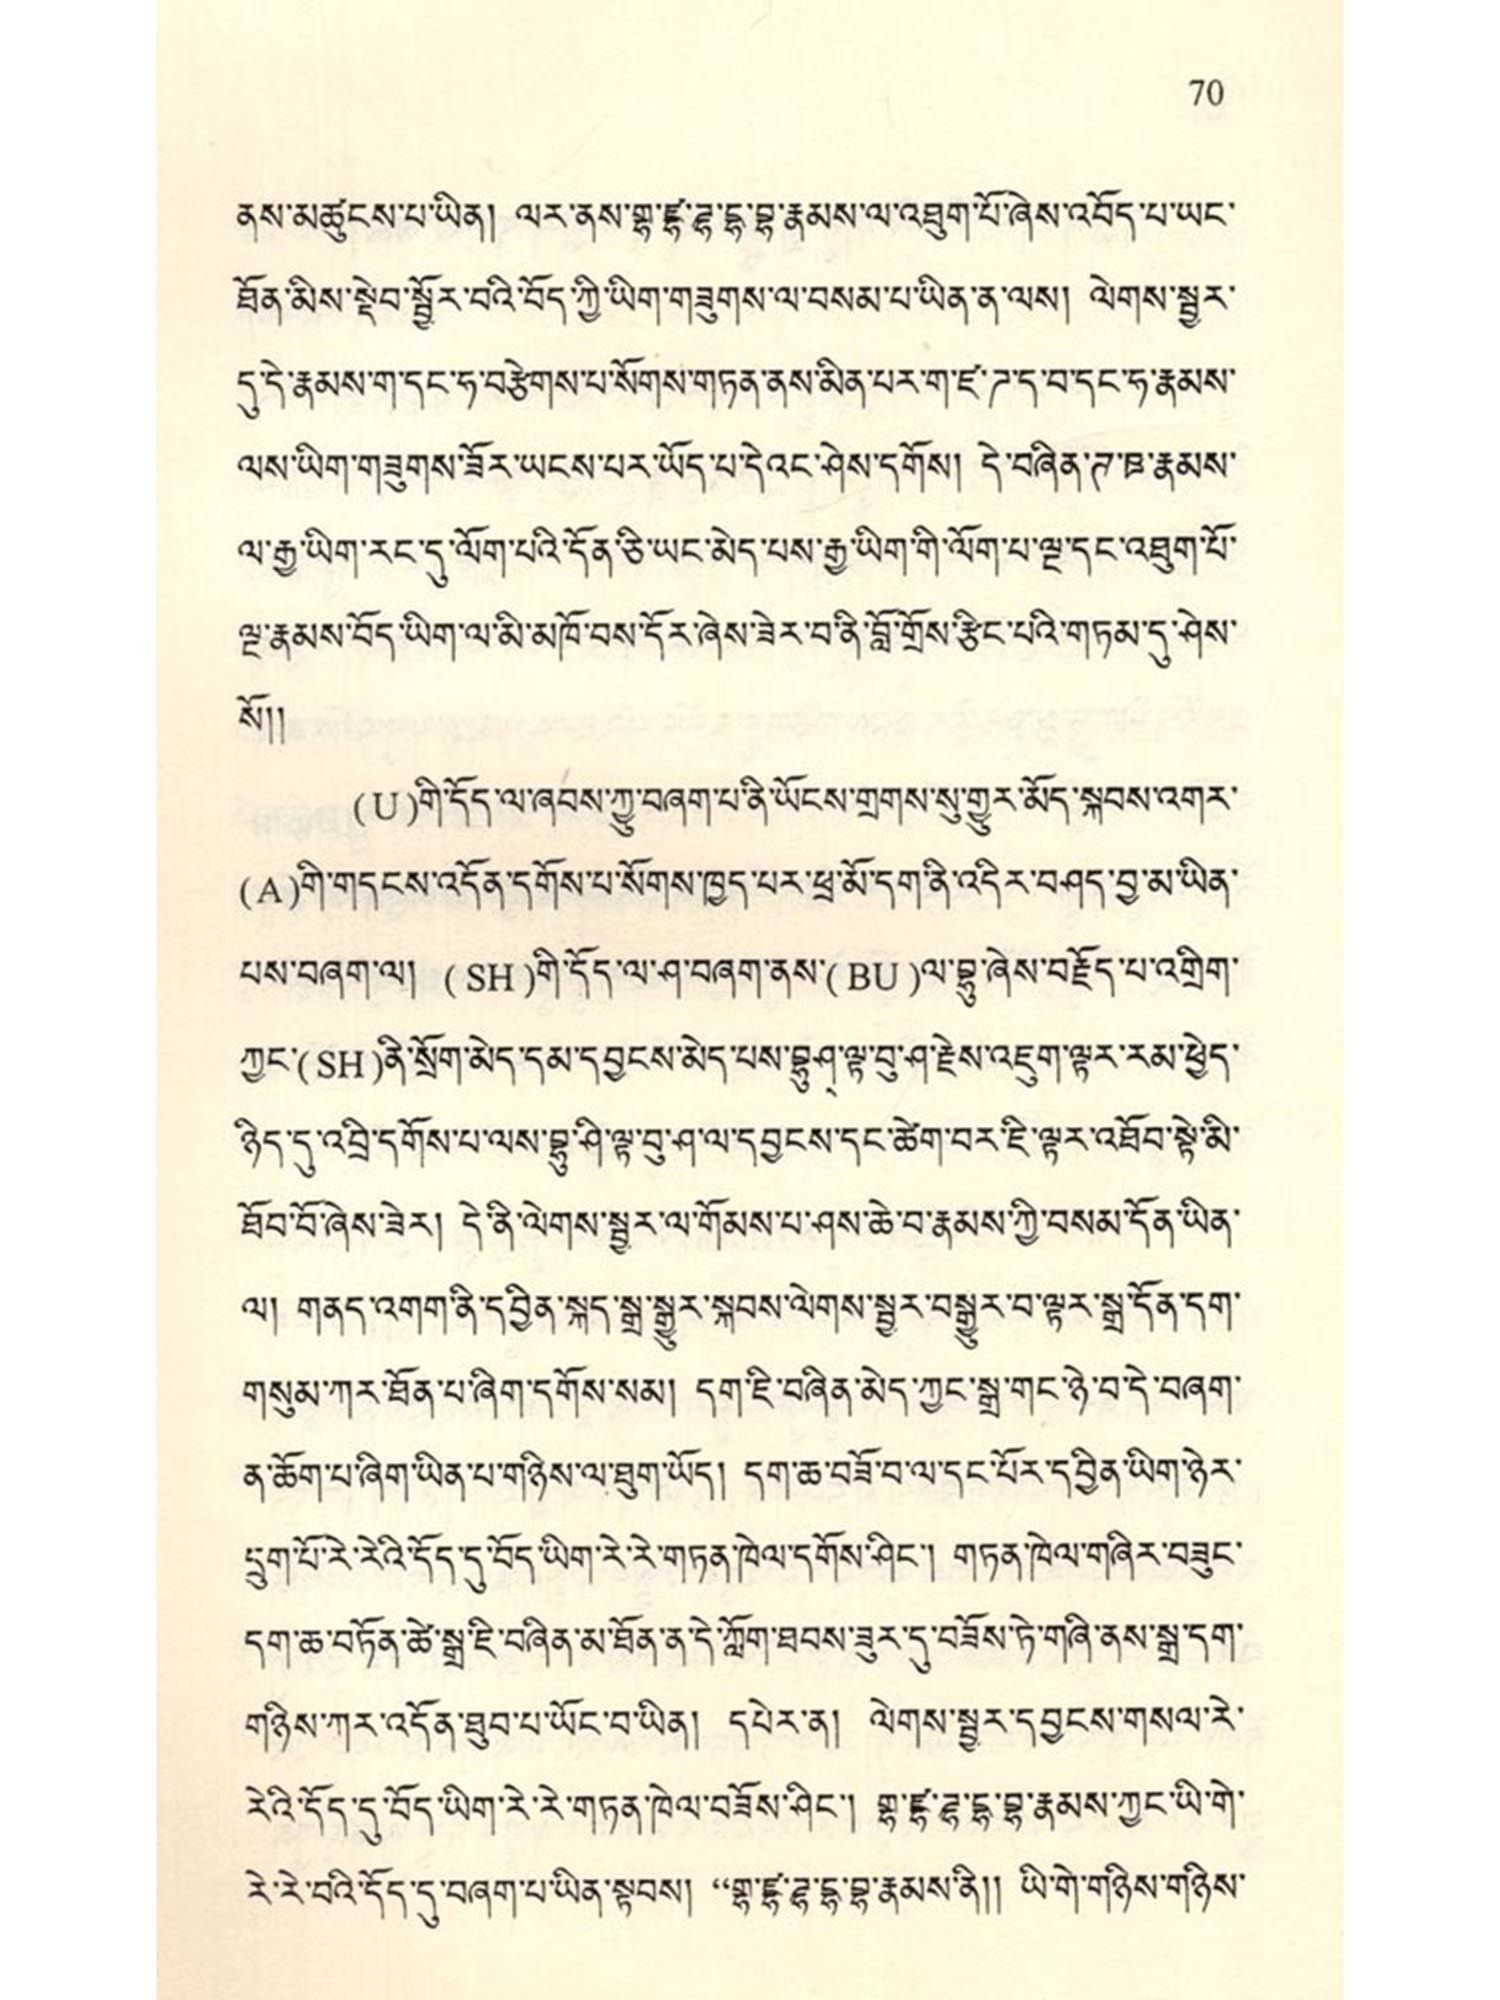 70
ནས་མཚུངས་པ་ཡིན། ལར་ནས་གྷ་ཛྷ་ཌྷ་དྷ་བྷ་རྣམས་ལ་འཐུག་པོ་ཞེས་འབོད་པ་ཡང་
ཐོན་མིས་སྡེབ་སྦྱོར་བའི་བོད་ཀྱི་ཡིག་གཟུགས་ལ་བསམ་པ་ཡིན་ན་ལས། ལེགས་སྦྱར་
དུ་དེ་རྣམས་ག་དང་ཧ་བརྩེགས་པ་སོགས་གཏན་ནས་མིན་པར་ག་ཛ་ཌ་ད་བ་དང་ཧ་རྣམས་
ལས་ཡིག་གཟུགས་ཟོར་ཡངས་པར་ཡོད་པ་དེའང་ཤེས་དགོས། དེ་བཞིན་ཊ་ཋ་རྣམས་
ལ་རྒྱ་ཡིག་རང་དུ་ལོག་པའི་དོན་ཅི་ཡང་མེད་པས་རྒྱ་ཡིག་གི་ལོག་པ་ལྔ་དང་འཐུག་པོ་
ལྔ་རྣམས་བོད་ཡིག་ལ་མི་མཁོ་བས་དོར་ཞེས་ཟེར་བ་ནི་བློ་གྲོས་རྩིང་པའི་གཏམ་དུ་ཤེས་
སོ།།
(U)གི་དོད་ལ་ཞབས་ཀྱུ་བཞག་པ་ནི་ཡོངས་གྲགས་སུ་གྱུར་མོད་སྐབས་འགར་
(A)གི་གདངས་འདོན་དགོས་པ་སོགས་ཁྱད་པར་ཕྲ་མོ་དག་ནི་འདིར་བཤད་བྱ་མ་ཡིན་
པས་བཞག་ལ། (SH)གི་དོད་ལ་ཤ་བཞག་ནས་(BU)ལ་བྷུ་ཞེས་བརྗོད་པ་འགྲིག་
ཀྱང་(SH)ནི་སྲོག་མེད་དམ་དབྱངས་མེད་པས་བྷུཤ྄་ལྟ་བུ་ཤ་རྗེས་འཇུག་ལྟར་རམ་ཕྱེད་
ཉིད་དུ་འབྲི་དགོས་པ་ལས་བྷུ་ཤི་ལྟ་བུ་ཤ་ལ་དབྱངས་དང་ཚེག་བར་ཇི་ལྟར་འཐོབ་སྟེ་མི་
ཐོབ་བོ་ཞེས་ཟེར། དེ་ནི་ལེགས་སྦྱར་ལ་གོམས་པ་ཤས་ཆེ་བ་རྣམས་ཀྱི་བསམ་དོན་ཡིན་
ལ། གནད་འགག་ནི་དབྱིན་སྐད་སྒྲ་སྒྱུར་སྐབས་ལེགས་སྦྱར་བསྒྱུར་བ་ལྟར་སྒྲ་དོན་དག་
གསུམ་ཀར་ཐོན་པ་ཞིག་དགོས་སམ། དག་ཇི་བཞིན་མེད་ཀྱང་སྒྲ་གང་ཉེ་བ་དེ་བཞག་
ན་ཆོག་པ་ཞིག་ཡིན་པ་གཉིས་ལ་ཐུག་ཡོད། དག་ཆ་བཟོ་བ་ལ་དང་པོར་དབྱིན་ཡིག་ཉེར་
དྲུག་པོ་རེ་རེའི་དོད་དུ་བོད་ཡིག་རེ་རེ་གཏན་ཁེལ་དགོས་ཤིང་། གཏན་ཁེལ་གཞིར་བཟུང་
དག་ཆ་བཏོན་ཚེ་སྒྲ་ཇི་བཞིན་མ་ཐོན་ན་དེ་ཀློག་ཐབས་ཟུར་དུ་བཟོས་ཏེ་གཞི་ནས་སྒྲ་དག་
གཉིས་ཀར་འདོན་ཐུབ་པ་ཡོང་བ་ཡིན། དཔེར་ན། ལེགས་སྦྱར་དབྱངས་གསལ་རེ་
རེའི་དོད་དུ་བོད་ཡིག་རེ་རེ་གཏན་ཁེལ་བཟོས་ཤིང་། གྷ་ཛྷ་ཌྷ་དྷ་བྷ་རྣམས་ཀྱང་ཡི་གེ་
རེ་རེ་བའི་དོད་དུ་བཞག་པ་ཡིན་སྟབས། “གྷ་ཛྷ་ཌྷ་དྷ་བྷ་རྣམས་ནི།། ཡི་གེ་གཉིས་གཉིས་